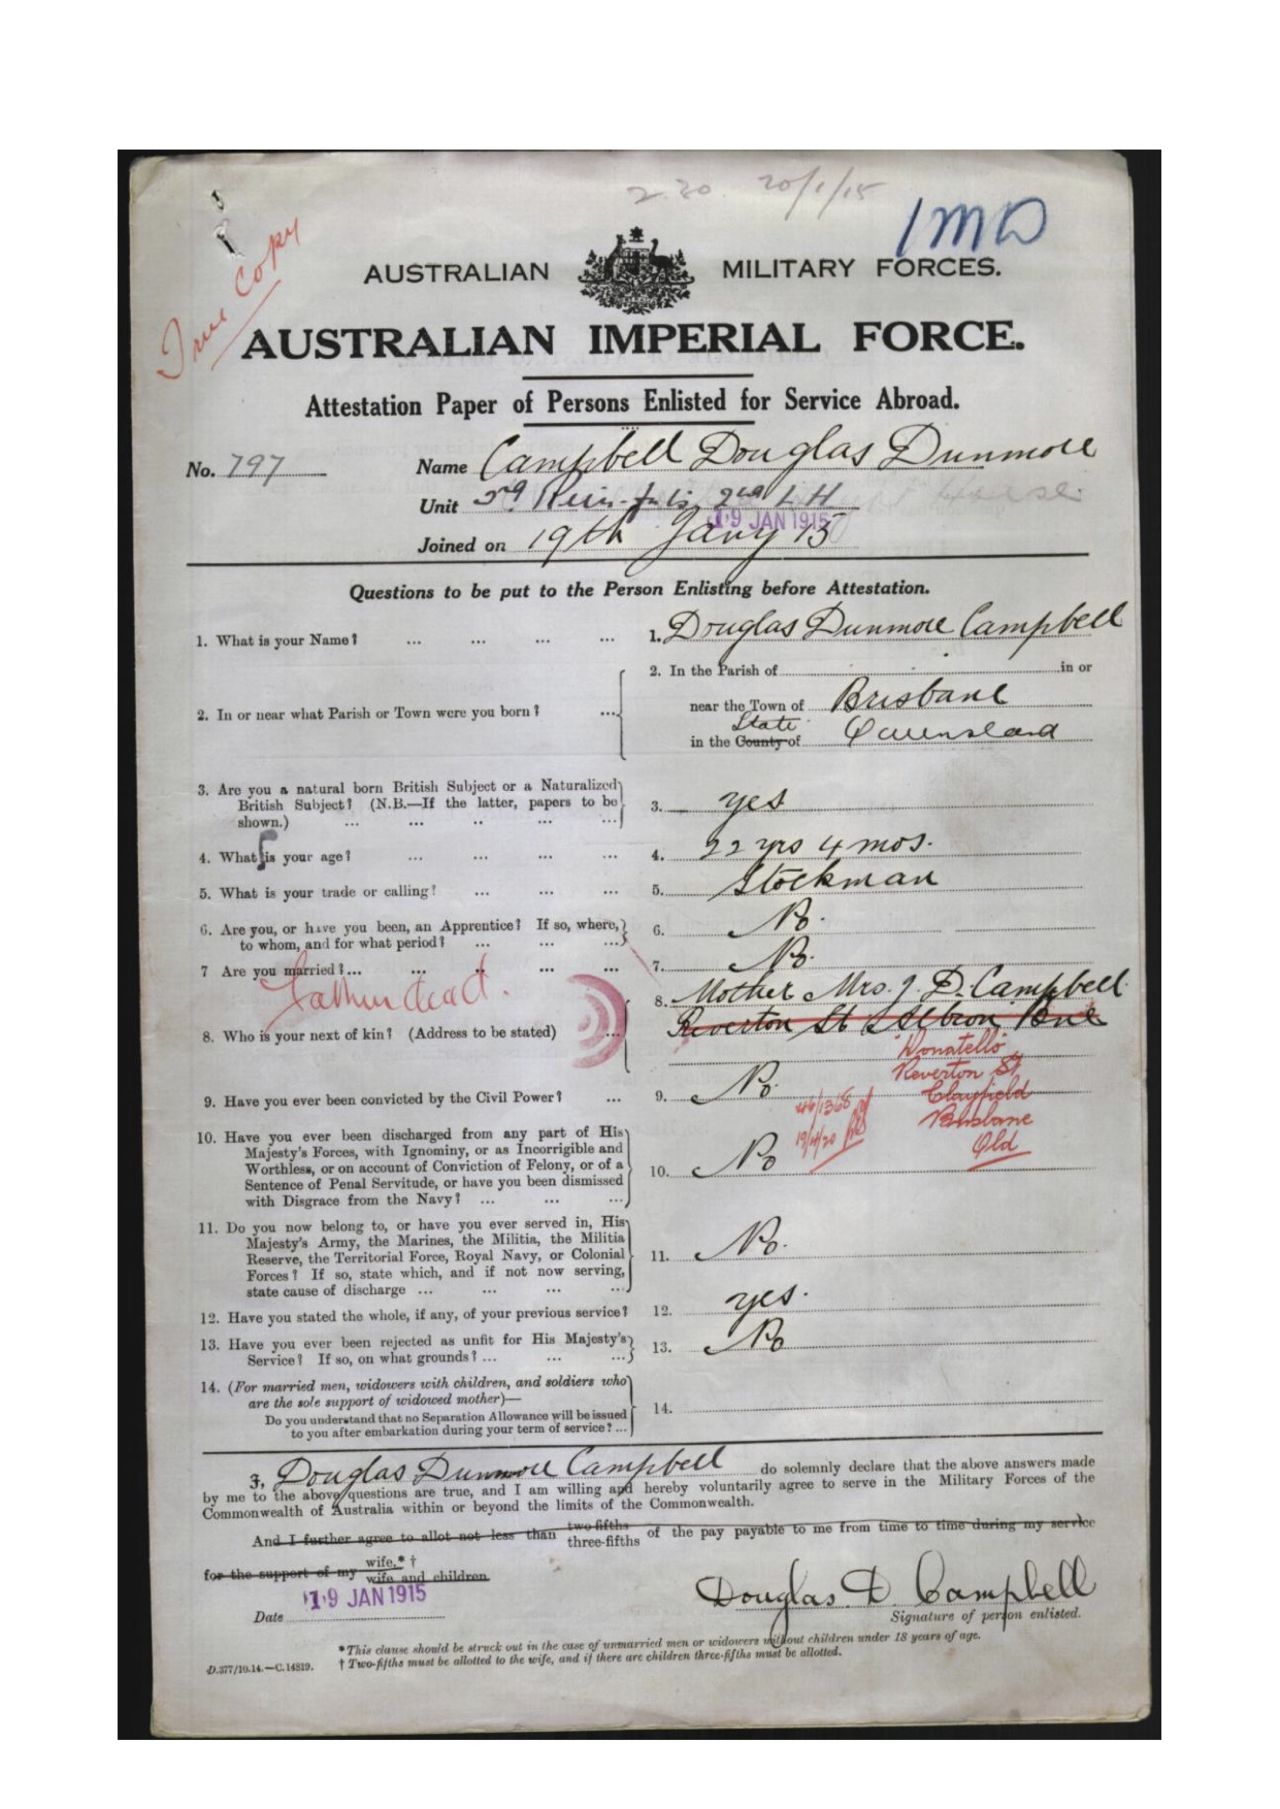 2.30 20/1/15
1MD
True Copy
AUSTRALIAN MILITARY FORCES.
AUSTRALIAN IMPERIAL FORCE.
Attestation Paper of Persons Enlisted for Service Abroad.
No. 797 Name Campbell Douglas Dunmore
Unit 3rd Rein-fts, 2nd L H
19 JAN 1915
Joined on 19th Jany 15
Questions to be put to the Person Enlisting before Attestation.
1. What is your Name? ... ... ... ... 1. Douglas Dunmore Campbell
2. In the Parish of in or
2. In or near what Parish or Town were you born? ... near the Town of Brisbane
State
in the County of Queensland
3. Are you a natural born British Subject or a Naturalized
British Subject? (N.B.—If the latter, papers to be 3. yes
shown.) ... ... .. ... ...
4. What is your age? ... ... ... ... 4. 22 yrs 4 mos.
5. What is your trade or calling? ... ... ... 5. Stockman
6. Are you, or have you been, an Apprentice? If so, where, 6. No.
to whom, and for what period? ... ... ...
7 Are you married?... ... .. ... ... 7. No.
Father dead.
8. Mother Mrs. J. D. Campbell
Reverton St Albion Bne
8. Who is your next of kin? (Address to be stated) ...
"Donatello"
Reverton St
Clayfield
Brisbane
Qld
9. Have you ever been convicted by the Civil Power? ... 9. No
46/1368
19/4/20
10. Have you ever been discharged from any part of His
Majesty's Forces, with Ignominy, or as Incorrigible and
Worthless, or on account of Conviction of Felony, or of a
Sentence of Penal Servitude, or have you been dismissed
with Disgrace from the Navy? ... ... ... 10. No
11. Do you now belong to, or have you ever served in, His
Majesty's Army, the Marines, the Militia, the Militia
Reserve, the Territorial Force, Royal Navy, or Colonial
Forces? If so, state which, and if not now serving,
state cause of discharge ... ... ... ... 11. No.
12. Have you stated the whole, if any, of your previous service? 12. yes.
13. Have you ever been rejected as unfit for His Majesty's
Service? If so, on what grounds? ... ... ... 13. No
14. (For married men, widowers with children, and soldiers who
are the sole support of widowed mother)—
Do you understand that no Separation Allowance will be issued
to you after embarkation during your term of service? ... 14.
I, Douglas Dunmore Campbell do solemnly declare that the above answers made
by me to the above questions are true, and I am willing and hereby voluntarily agree to serve in the Military Forces of the
Commonwealth of Australia within or beyond the limits of the Commonwealth.
And I further agree to allot not less than two-fifths three-fifths of the pay payable to me from time to time during my service
for the support of my wife.* † wife and children
19 JAN 1915
Date
Douglas. D. Campbell
Signature of person enlisted.
* This clause should be struck out in the case of unmarried men or widowers without children under 18 years of age.
D.377/10.14.—C.14819. † Two-fifths must be allotted to the wife, and if there are children three-fifths must be allotted.